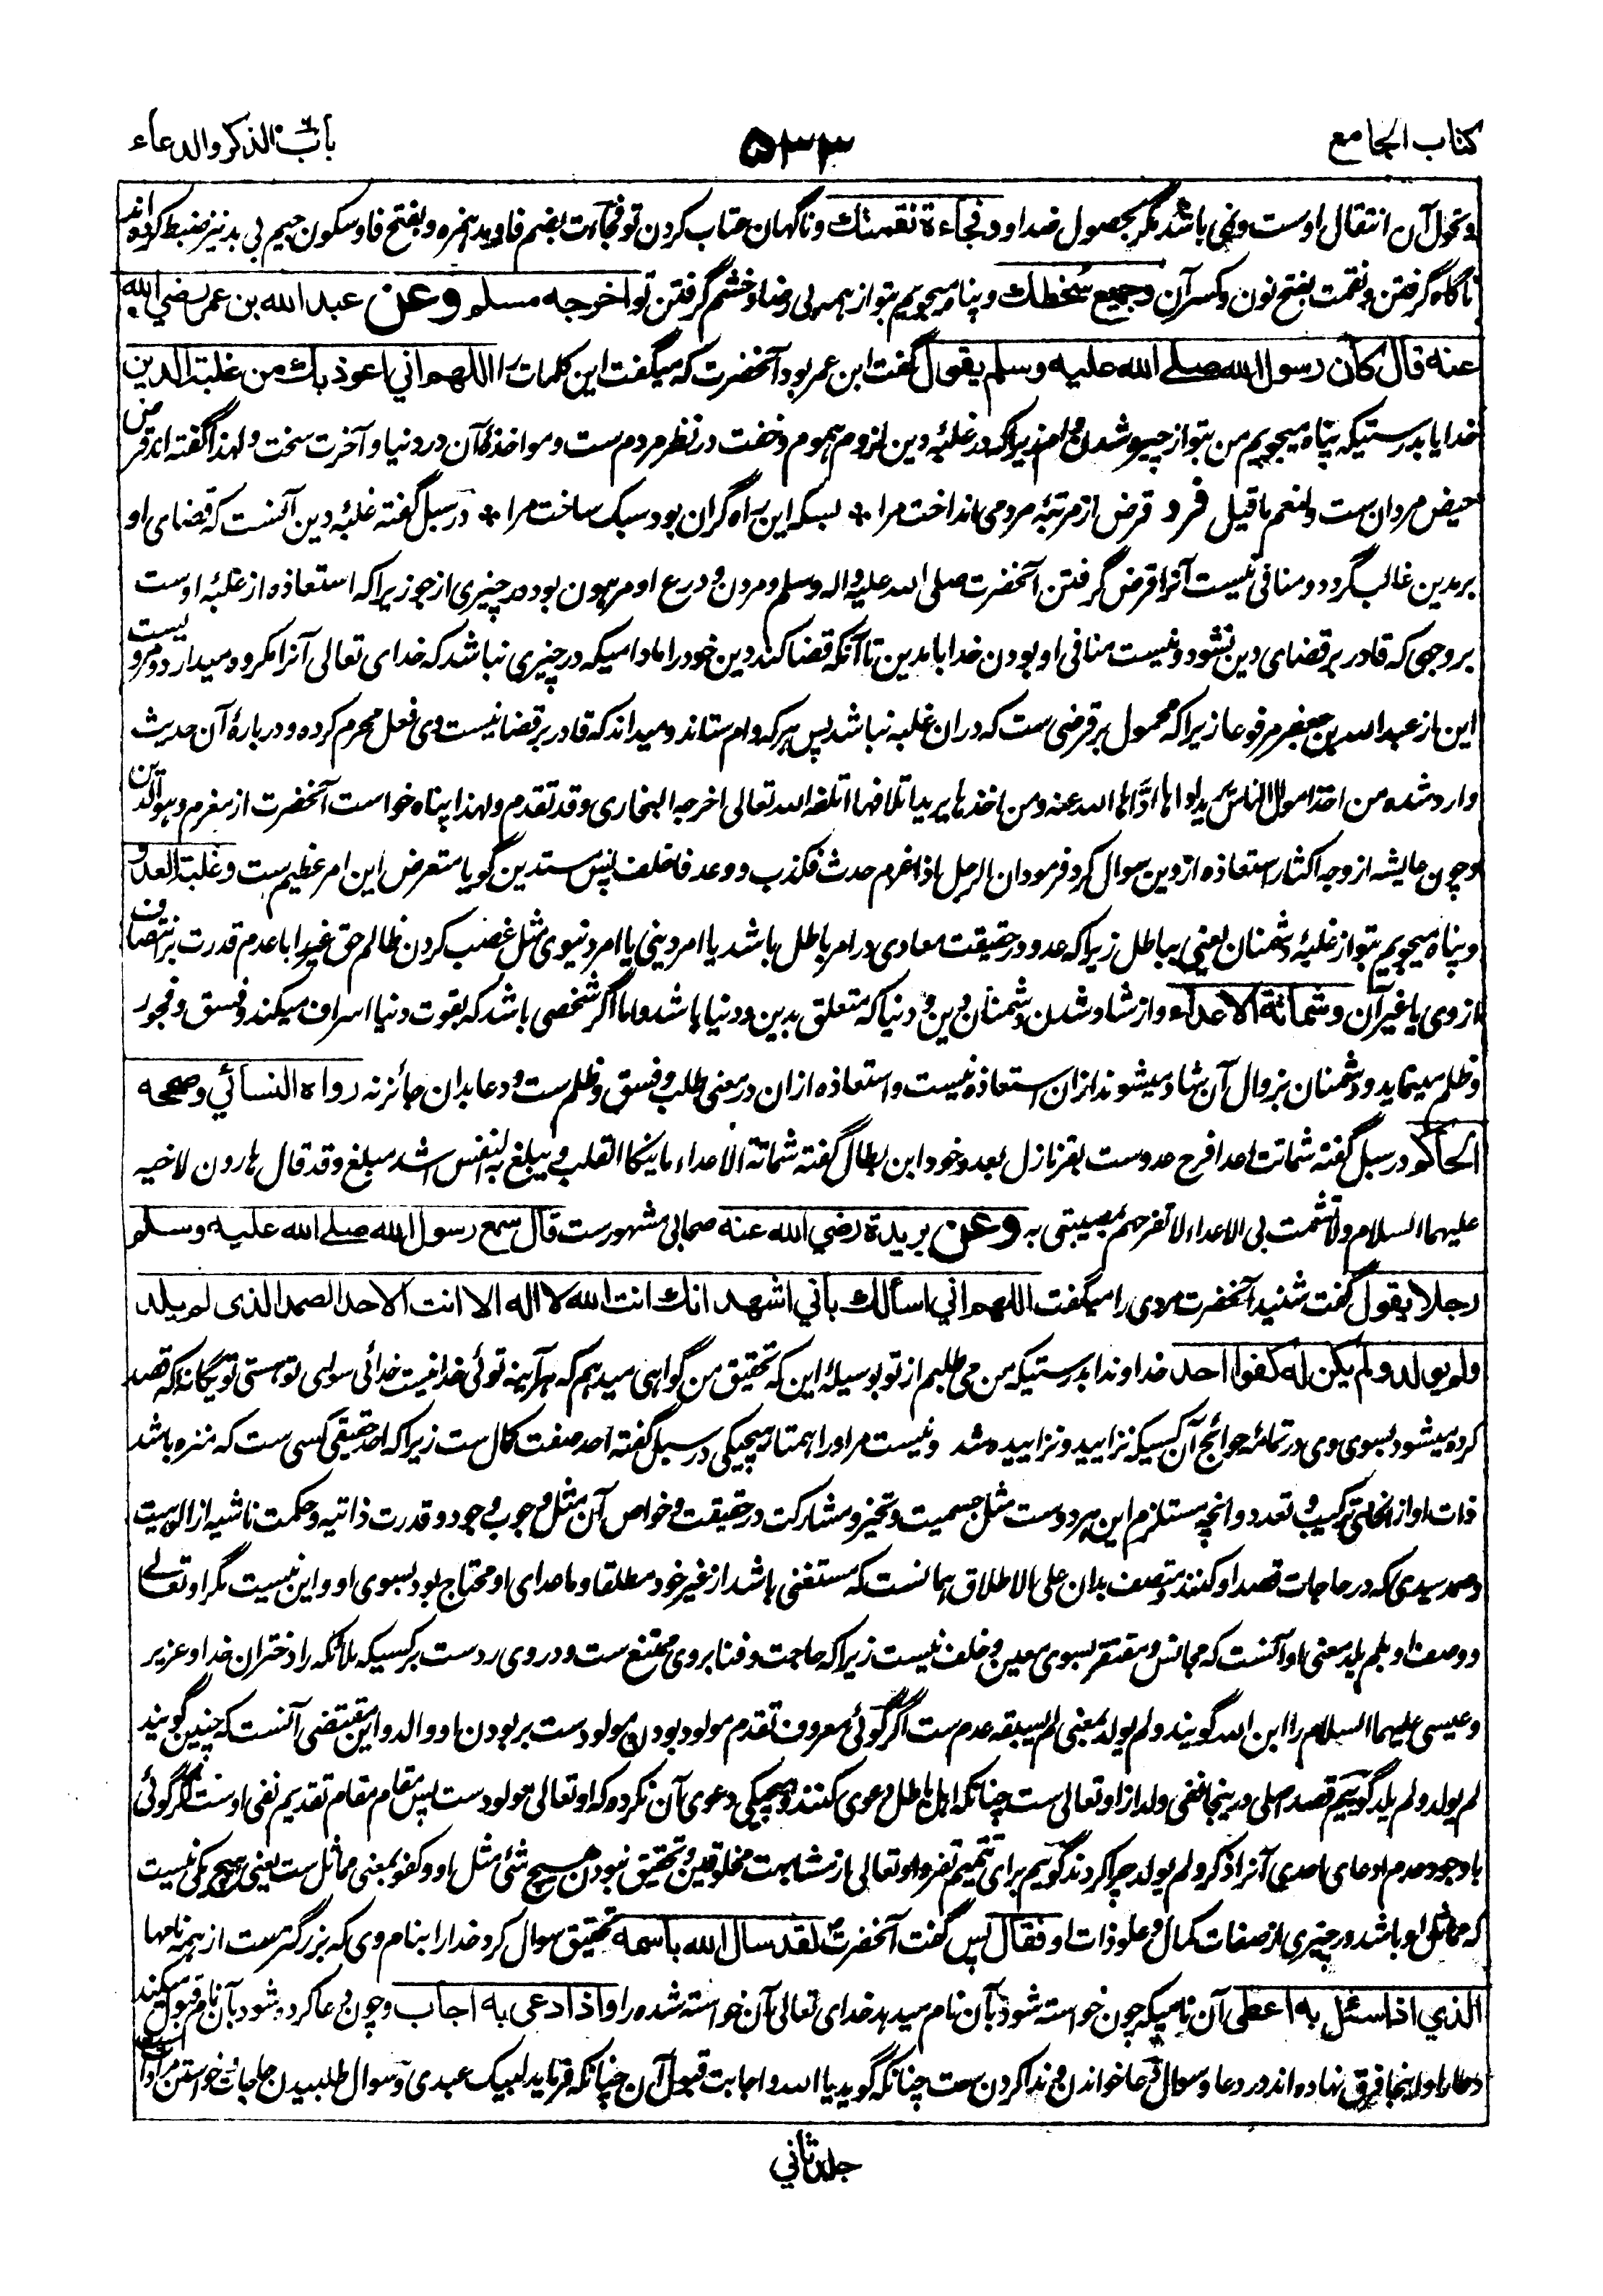 کتاب الجامع
۵۳۳
باب الذکر والدعاء
وتحول آن انتقال اوست ونمی باشد مگر بحصول ضد او وفجاءة نقمتك وناگهان عتاب کردن تو فجآءت بضم فا ومد همزه وبفتح فا وسکون جیم بی مد نیز ضبط کرده اند
ناگاه گرفتن ونقمت بفتح نون وکسر آن وجمیع سخطك وپناه میجویم بتو از همه بی رضا وخشم گرفتن تو اخرجه مسلم وعن عبد الله بن عمر رضي الله
عنه قال کان رسول الله صلے الله علیه وسلم یقول گفت ابن عمر بود آنحضرت که میگفت این کلمات را اللهم اني اعوذ بك من غلبة الدین
خدایا بدرستیکه پناه میجویم من بتو از چیره شدن وام زیراکه در غلبهٔ دین لزوم هموم وخفت در نظر مردم ست ومواخذهٔ آن در دنیا وآخرت سخت ولهذا گفته اند قرض
حیض مردان ست ولنعم ما قیل فرد قرض از مرتبهٔ مردمی انداخت مرا * بسکه این راه گران بود سبک ساخت مرا * در سبل گفته غلبهٔ دین آنست که قضای او
بر مدین غالب گردد ومنافی نیست آنرا قرض گرفتن آنحضرت صلی الله علیه واله وسلم ومردن ودرع او مرهون بود در چیزی از جو زیراکه استعاذه از غلبهٔ اوست
بر وجهی که قادر بر قضای دین نشود ونیست منافی او بودن خدا با مدین تا آنکه قضا کند دین خود را مادامیکه در چیزی نباشد که خدای تعالی آنرا مکروه میدارد ومرویست
این از عبد الله بن جعفر مرفوعا زیراکه محمول بر قرضی ست که دران غلبه نباشد پس هرکه وام ستاند ومیداند که قادر بر قضا نیست وی فعل محرم کرده ودربارهٔ آن حدیث
وارد شده من اخذ اموال الناس یرید اداها ادّاها الله عنه ومن اخذها یرید اتلافها اتلفه الله تعالی اخرجه البخاری وقد تقدم ولهذا پناه خواست آنحضرت از مغرم وهو الدین
وچون عایشه از وجه اکثار استعاذه از دین سوال کرد فرمود ان الرجل اذا غرم حدث فکذب ووعد فاخلف پس مستدین گویا متعرض این امر عظیم ست وغلبة العدو
وپناه میجویم بتو از غلبهٔ دشمنان یعنی بباطل زیراکه عدو در حقیقت معادی در امر باطل باشد یا امر دینی یا امر دنیوی مثل غصب کردن ظالم حق غیر را با عدم قدرت بر انتصاف
از وی یا غیر آن وشماتة الاعداء واز شاد شدن دشمنان دین ودنیا که متعلق بدین ودنیا باشد واما اگر شخصی باشد که بقوت دنیا اسراف میکند وفسق وفجور
وظلم مینماید ودشمنان بزوال آن شاد میشوند ازان استعاذه نیست واستعاذه ازان در معنی طلب وفسق وظلم ست ودعا بدان جائز نه رواه النسائي وصححه
الحاکم در سبل گفته شماتت اعدا فرح عدوست بضر نازل بعدو خود ابن بطال گفته شماتة الاعداء ما ینکا القلب ویبلغ به النفس اشد مبلغ وقد قال هارون لاخیه
علیهما السلام ولا تشمت بی الاعداء لا تفرحهم بمصیبتی به وعن بریدة رضي الله عنه صحابی مشهورست قال سمع رسول الله صلے الله علیه وسلم
رجلا یقول گفت شنید آنحضرت مردی را میگفت اللهم اني اسألك بأني اشهد انك انت الله لا اله الا انت الاحد الصمد الذی لم یلد
ولم یولد ولم یکن له کفوا احد خداوندا بدرستیکه من می طلبم از تو بوسیلهٔ این که تحقیق من گواهی میدهم که هرآئینه توئی خدا نیست خدائی سوای تو هستی تو یگانه که قصد
کرده میشود بسوی وی در تمامهٔ حوائج آن کسیکه نزایید ونزاییده شد ونیست مر او را همتا هیچیکی در سبل گفته احد صفت کمال ست زیراکه احد حقیقی کسی ست که منزه باشد
ذات او از انحای ترکیب وتعدد وانچه مستلزم این هر دوست مثل جسمیت وتحیز ومشارکت در حقیقت وخواص آن مثل وجوب وجود وقدرت ذاتیه وحکمت ناشیه از الوهیت
وصمد سیدی که در حاجات قصد او کنند ومتصف بدان علی الاطلاق همانست که مستغنی باشد از غیر خود مطلقا وما عدای او محتاج بود بسوی او واین نیست مگر او تعالے
ووصف او بلم یلد معنی او آنست که مجانس ومفتقر بسوی معین وخلف نیست زیراکه حاجت وفنا بروی ممتنع ست ودروی ردست بر کسیکه ملائکه را دختران خدا وعزیر
وعیسی علیهما السلام را ابن الله گویند ولم یولد بمعنی لم یسبقه عدم ست اگر گوئی معروف تقدم مولود بودن مولود ست بر بودن او والد واین مقتضی آنست که چنین گویند
لم یولد ولم یلد گوییم قصد اصلی درینجا نفی ولد از او تعالی ست چنانکه اهل باطل دعوی کنند وهیچیکی دعوی آن نکرده که او تعالی مولودست پس مقام مقام تقدیم نفی اوست اگر گوئی
با وجود عدم ادعای احدی آنرا ذکر ولم یولد چرا کردند گوییم برای تتمیم تفرد او تعالی از مشابهت مخلوقین وتحقیق نبودن هیچ شئی مثل او وکفو بمعنی مماثل ست یعنی هیچ یکی نیست
که مماثل او باشد در چیزی از صفات کمال وعلو ذات او فقال پس گفت آنحضرت لقد سال الله باسمه تحقیق سوال کرد خدا را بنام وی که بزرگترست از همه نامها
الذي اذا سئل به اعطی آن نامیکه چون خواسته شود بآن نام میدهد خدای تعالی آن خواسته شده را واذا دعی به اجاب وچون دعا کرده شود بآن نام قبول میکند
دعا را واینجا فرق نهاده اند در دعا وسوال دعا خواندن وندا کردن ست چنانکه گوید یا الله واجابت قبول آن چنانکه فرماید لبیک عبدی وسوال طلبیدن حاجات خواستن مراد
جلد ثاني